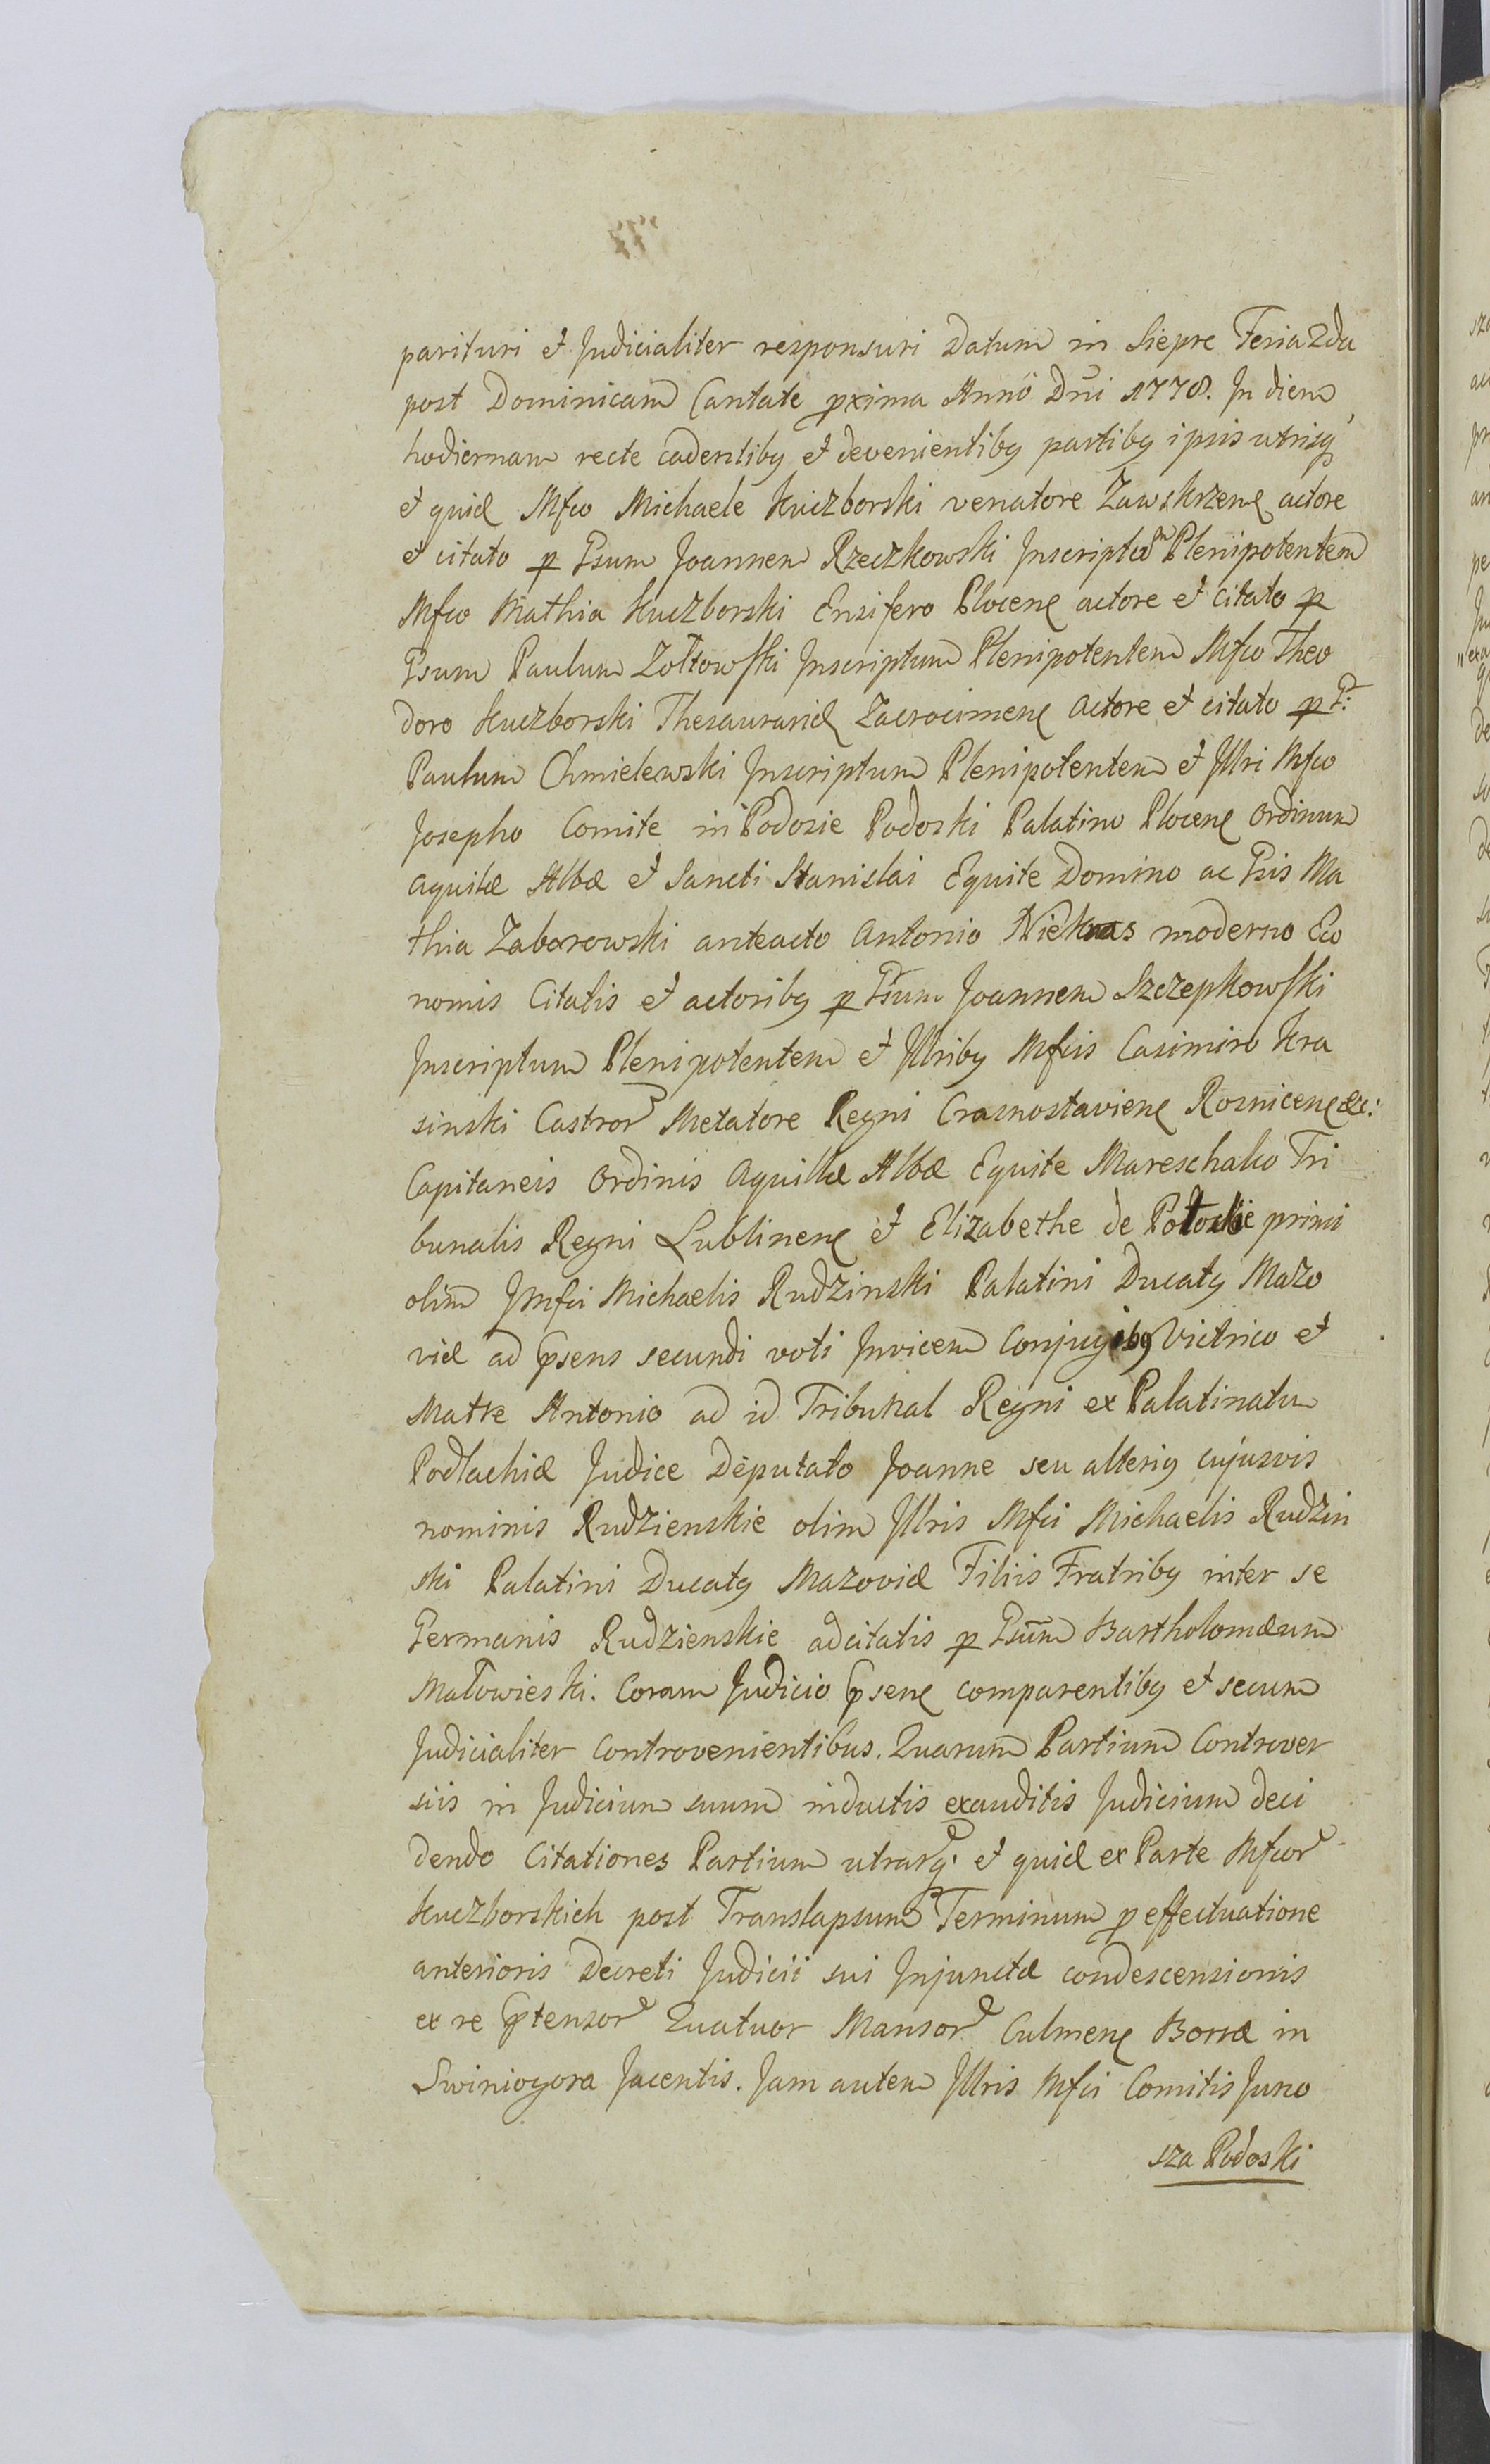 parituri et Judicialiter responsuri Datum in Siepre Feria 2da
post Dominicam Cantate pxima Anno Dni 1778. In diem
hodiernam recte cadentibꝯ et devenientibꝯ partibꝯ ipsis utrisqꝫ
et quid Mfco Michaele Kuczborski venatore Zawskrzenꝭ actore
et citato ꝑ Gsum Joannem Rzeczkowski Inscriptum Plenipotentem
Mfco Mathia Kuczborski Ensifero Plocenꝭ actore et citato ꝑ
Gsum Paulum Zołtowski Inscriptum Plenipotentem Mfco Theo
doro Kuczborski Thesaurarid Zacrocimenꝭ actore et citato ꝑ G:
Paulum Chmielewski Inscriptum Plenipotentem et Illri Mfco
Josepho Comite in Podosie Podoski Palatino Plocenꝭ ordinum
aquilæ Albæ et Sancti Stanislai Equite Domino ac Gsis Ma
thia Zaborowski anteacto Antonio Niekras moderno Eco
nomis Citatis et actoribꝯ ꝑ Gsum Joannem Szczepkowski
Inscriptum Plenipotentem et Illribꝯ Mfcis Casimiro Kra
sinski Castror Metatore Regni Crasnostavienꝭ Rosnicenꝭ &c:
Capitaneis ordinis Aquillæ Albæ Equite Mareschalco Tri
bunalis Regni Lublinenꝭ et Elizabethe de Potockie primi
olim JMfci Michaelis Rudzinski Palatini Ducatꝯ Mazo
viæ ad psens secundi voti Invicem Conjugibꝯ Victrico et
Matre Antonio ad id Tribunal Regni ex Palatinatu
Podlachiæ Judice Deputato Joanne seu alteriꝯ cujusvis
nominis Rudzienskie olim Illris Mfci Michaelis Rudzin
ski Palatini Ducatꝯ Mazoviæ Filiis Fratribꝯ inter se
Germanis Rudzienskie adcitatis ꝑ Gsum Bartholomæum
Małowieski. Coram Judicio psenꝭ comparentibꝯ et secum
Judicialiter Controvenientibus. Quarum Partium Controver
siis in Judicium suum inductis exauditis Judicium deci
dendo Citationes Partium utrarqꝫ et quid ex Parte Mfcor
Kuczborskich post Translapsum Terminum ꝓ effectuatione
anterioris Decreti Judicii sui Injunctæ condescensionis
ex re ptensor Quatuor Mansor Culmenꝭ Borræ in
Swiniogora Jacentis. Jam autem Illris Mfci Comitis Juno
sza Podoski